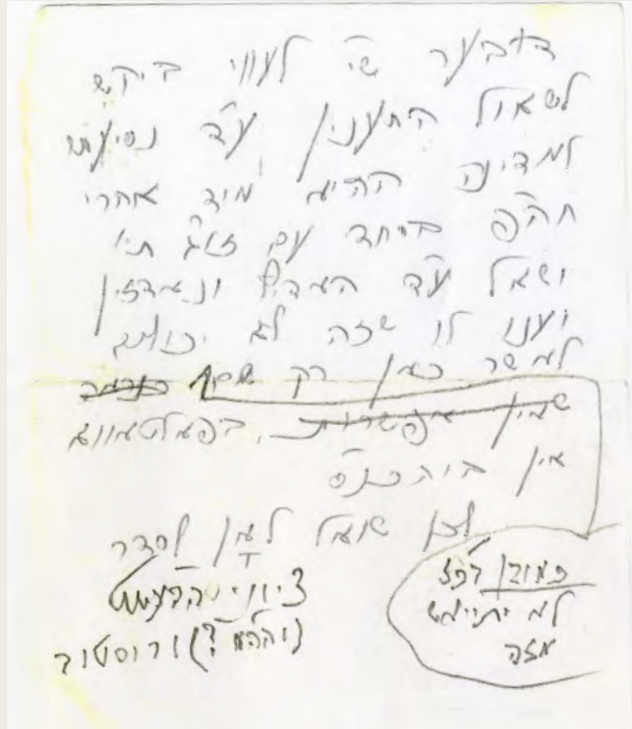 דובער שי' לעווי ביקש
לשאול התענין ע"ד נסיעתו
למדינה ההיא מיד אחרי
חה"פ ביחד עם זוג' תי'
ושאל ע"ד האדיץ וניעזין
וענו לו שזה לא יכולים
לאשר כאן רק
שאין אפשרות. בפאלטאווא
אין ביהכנ"ס
לכן שואל לאן לסדר
ציוני הדעת
(והלאה?) ורוסטוב
כמובן דפז
לא יתייאש
מזה